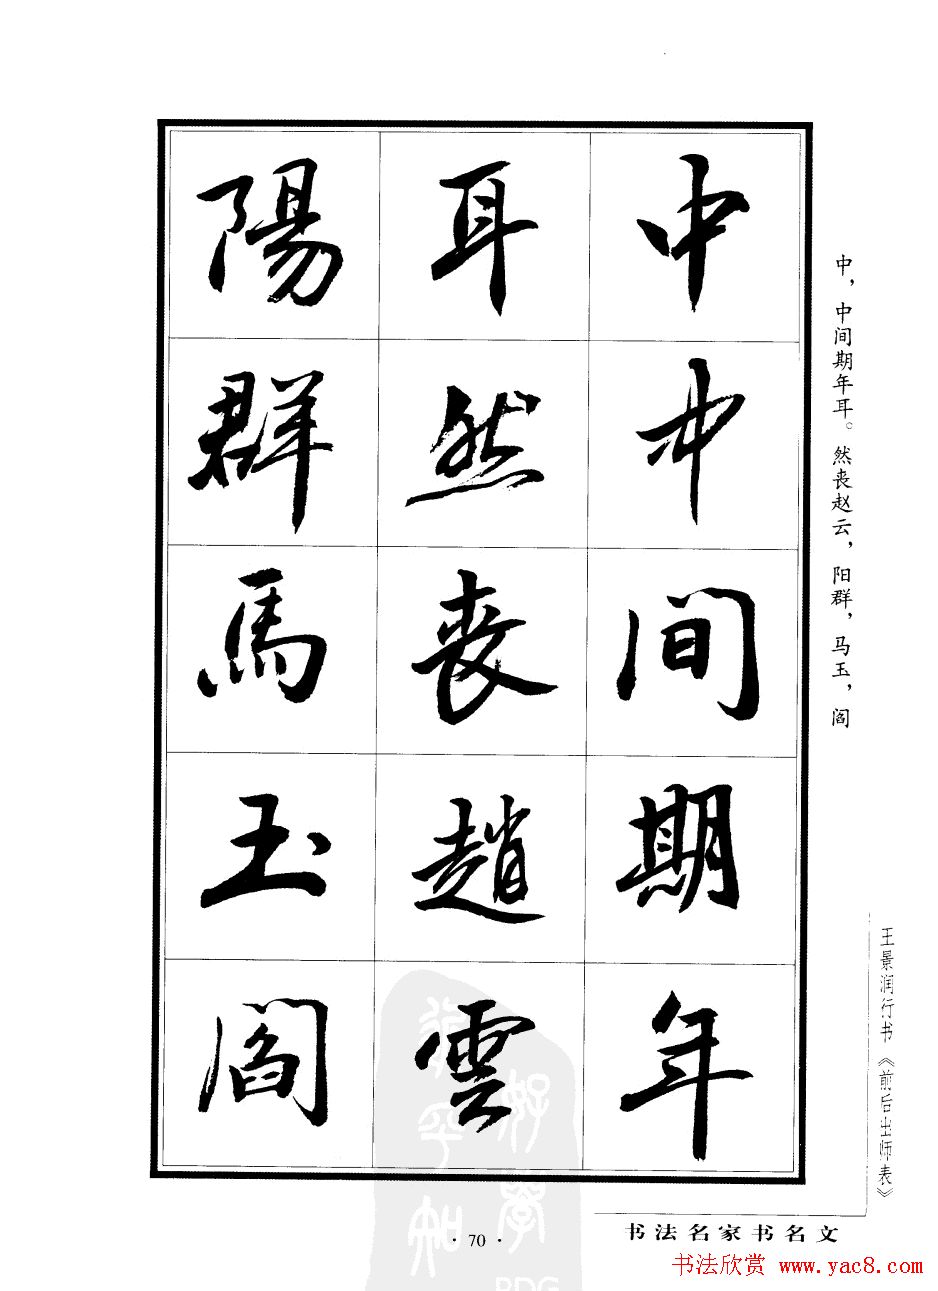 中中間期年
耳然喪趙雲
陽群馬玉閻
中，中间期年耳。然丧赵云，阳群，马玉，阎
王景润行书《前后出师表》
书法名家书名文
· 70 ·
书法欣赏 www.yac8.com